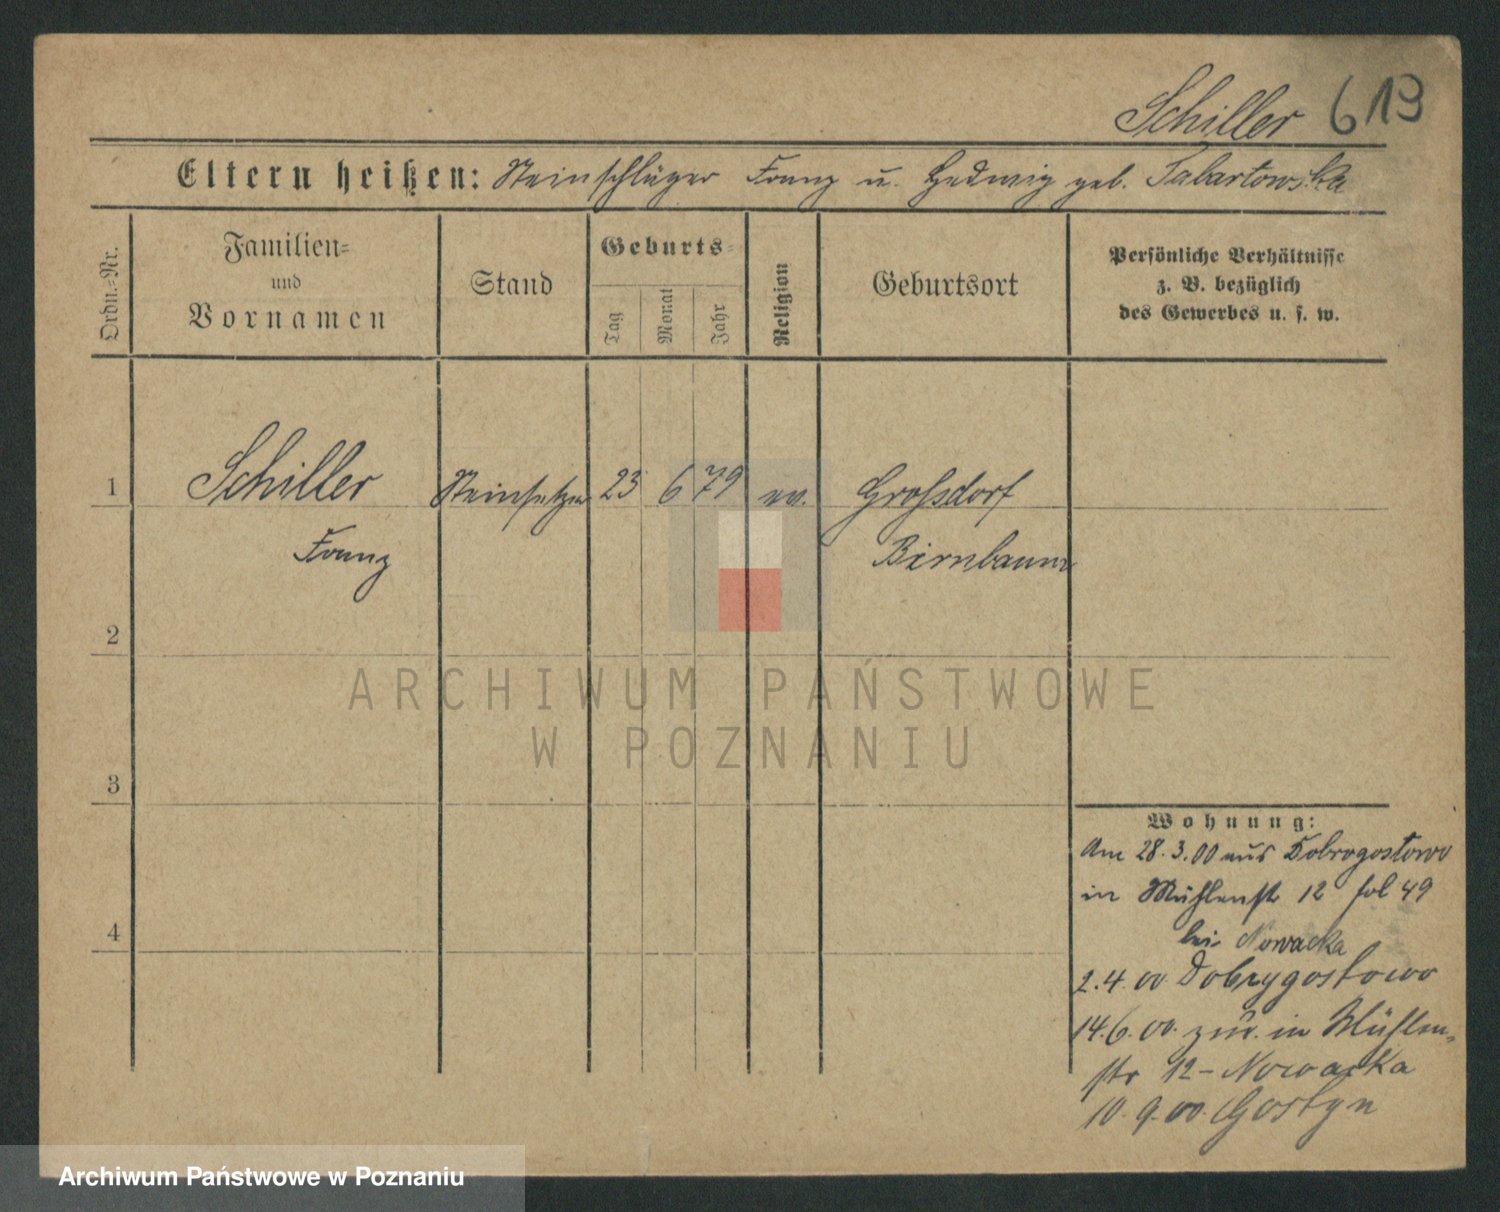 Schiller 613
Eltern heißen: Steinschläger Franz u. Hedwig geb. Tabartowska
Ordn.=Nr.
Familien=
und
Vornamen
Stand
Geburts=
Tag
Monat
Jahr
Religion
Geburtsort
Persönliche Verhältnisse
z. B. bezüglich
des Gewerbes u. s. w.
1 Schiller Steinsetzer 23 6 79 ev. Großdorf
Franz Birnbaum
2
3
4
Wohnung:
Am 28.3.00 aus Dobrogostowo
in Mühlenstr 12 fol 49
bei Nowacka
2.4.00 Dobrygostowo
14.6.00. zur. in Mühlen-
str 12 - Nowacka
10.9.00. Gostyn
ARCHIWUM PAŃSTWOWE
W POZNANIU
Archiwum Państwowe w Poznaniu